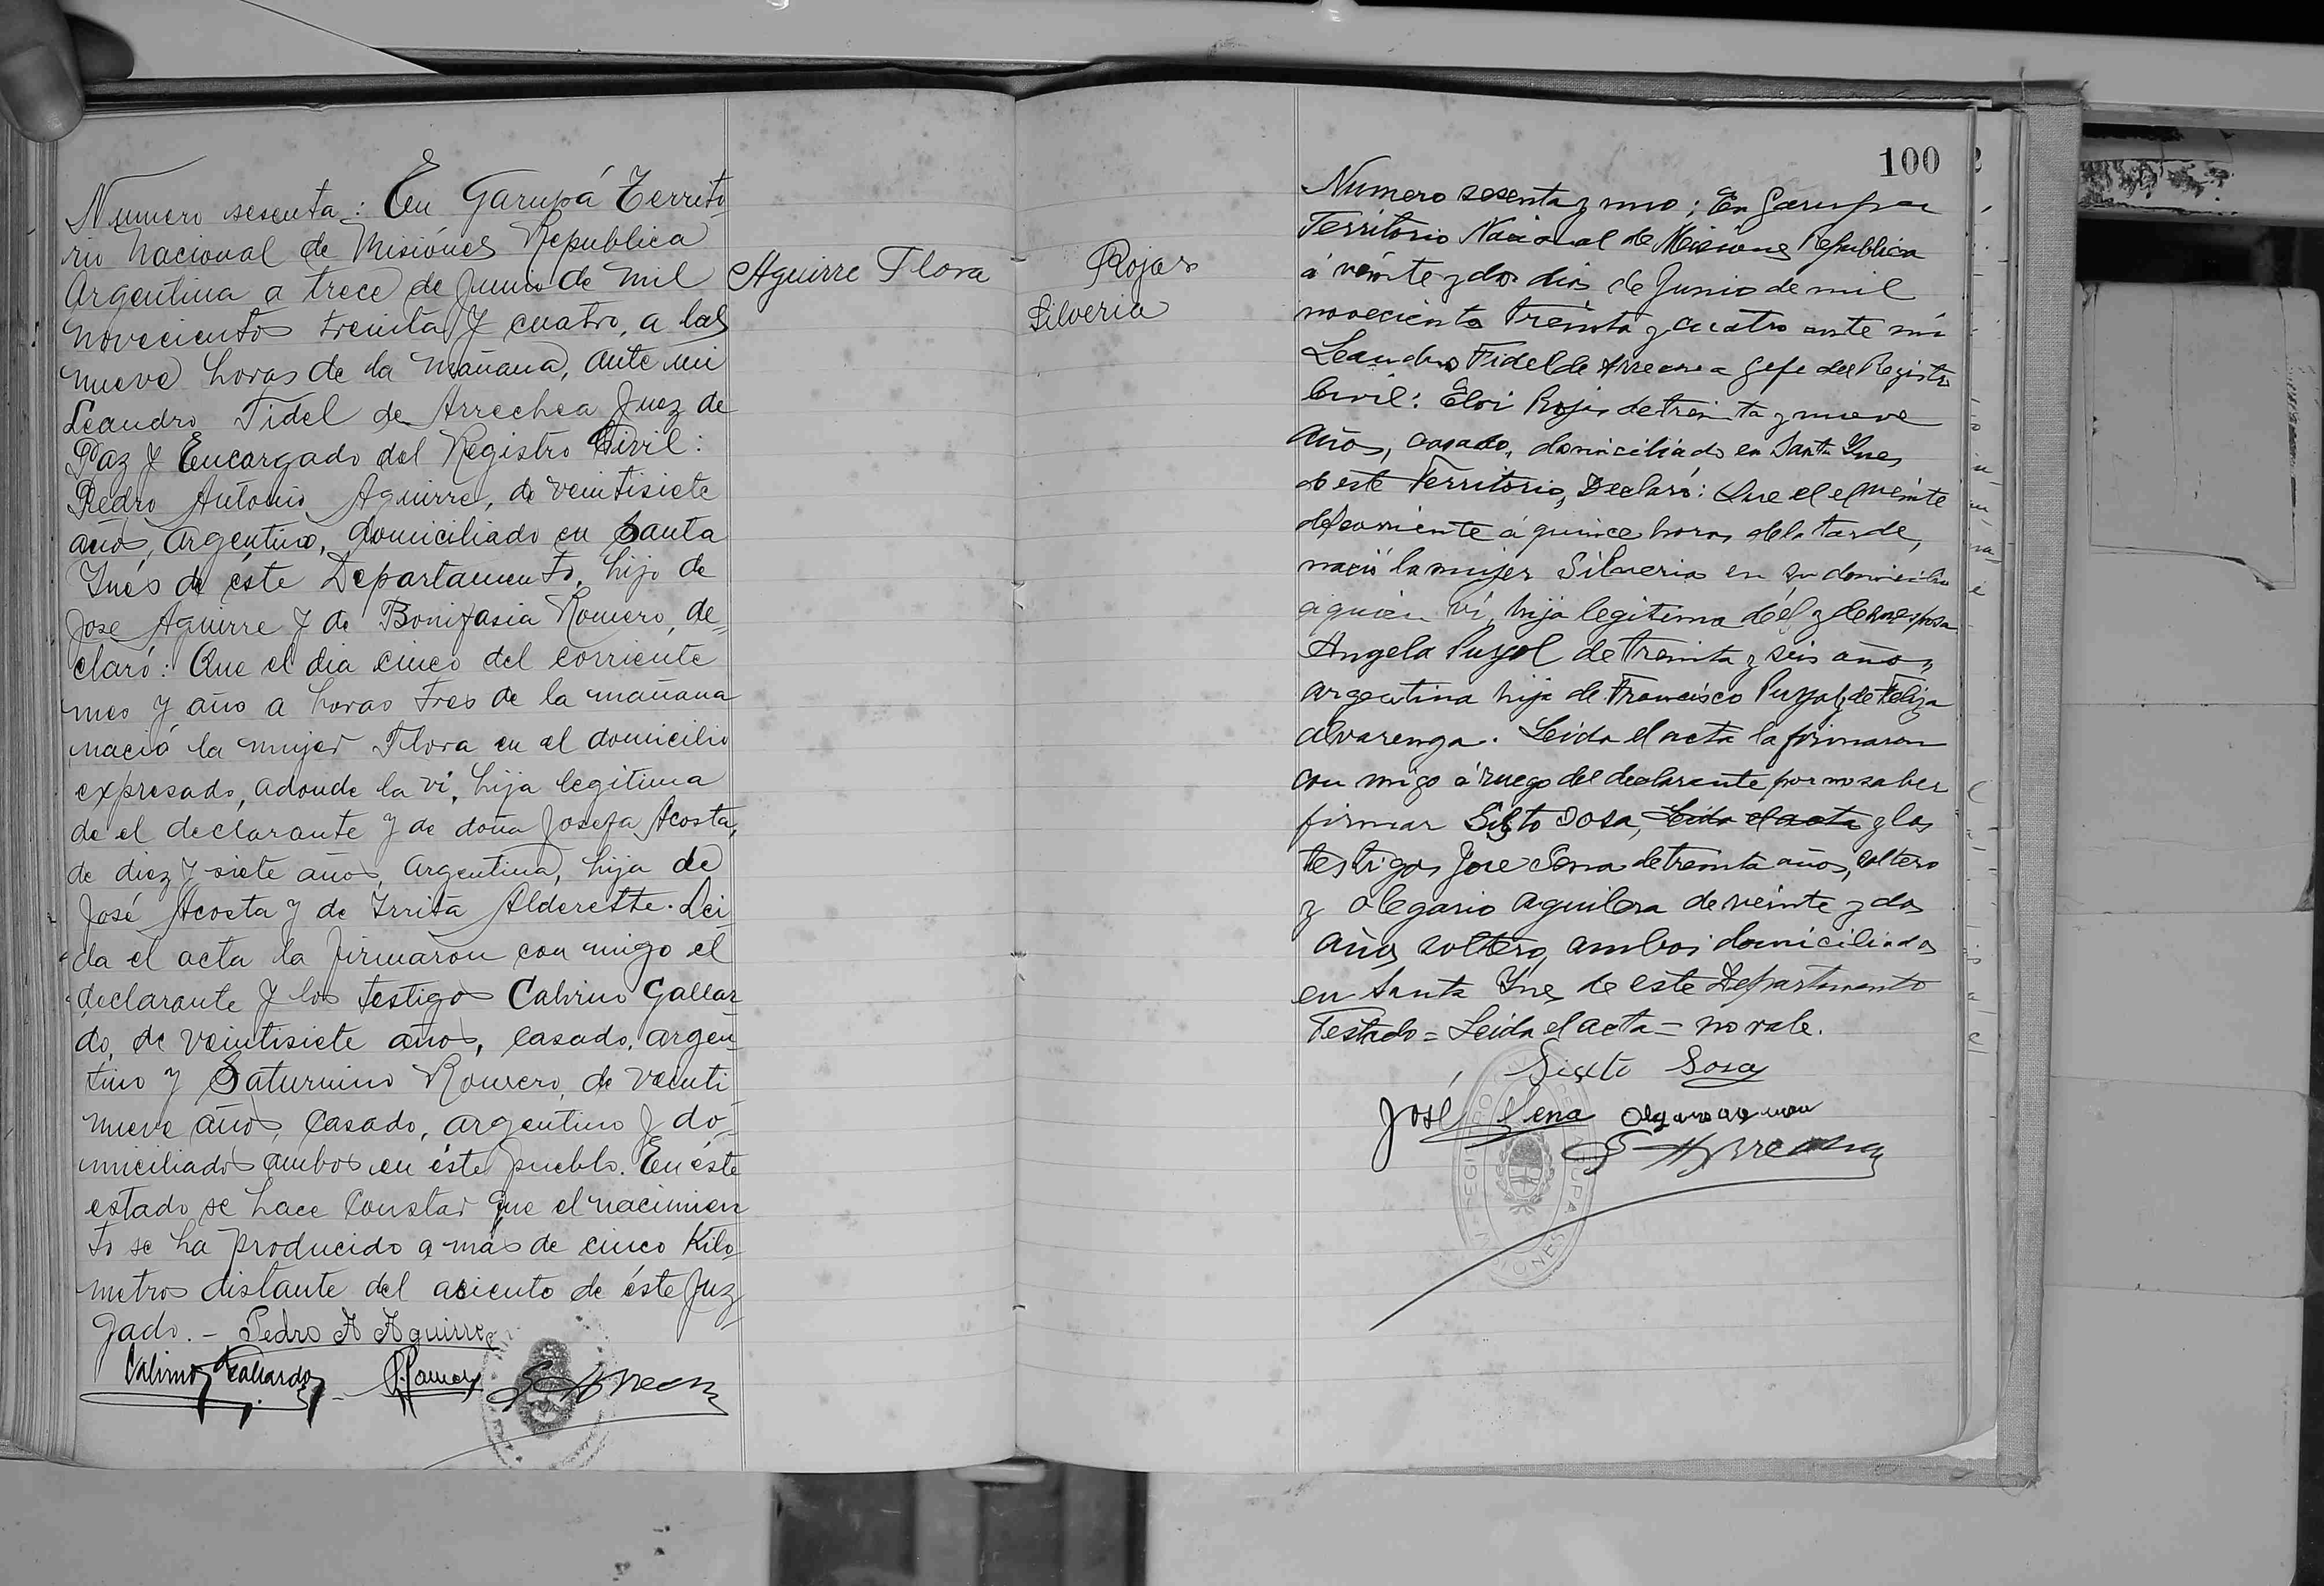 Numero sesenta: En Garupá Territo
rio Nacional de Misiónes Republica
Argentina a trece de Junio de mil
novecientos treinta y cuatro, a las
nueve horas de la mañana, ante mi
Leandro Fidel de Arrechea Juez de
Paz y Encargado del Registro Civil:
Pedro Antonio Aguirre, de veintisiete
años, argentino, domiciliado en Santa
Inés de éste Departamento, hijo de
José Aguirre y de Bonifasia Romero, de-
claró: Que el dia cinco del corriente
mes y año a horas tres de la mañana
nació la mujer Flora en el domicilio
expresado, adonde la vi, hija legitima
de el declarante y de doña Josefa Acosta,
de diez y siete años, argentina, hija de
José Acosta y de Irrita Alderette. Lei-
da el acta la firmaron con migo el
declarante y los testigos Calirino Gallar-
do, de veintisiete años, casado, argen-
tino y Saturnino Romero, de veinti
nueve años, casado, argentino y do-
miciliados ambos en éste pueblo. En éste
estado se hace constar que el nacimien
to se ha producido a más de cinco Kilo-
metros distante del asiento de éste Juz
gado. - Pedro A Aguirre
Gallardo
Aguirre Flora
Rojas
Silveria
100
Numero sesenta y uno; En Garupa
Territorio Nacional de Misiones Republica
á veinte y dos dias de Junio de mil
novecientos treinta y cuatro ante mi
Leandro Fidel de Arrechea Gefe del Registro
Civil: Eloi Rojas de treinta y nueve
años, casado, domiciliado en Santa Ynes
de este Territorio, Declaró: Que el veinte
del corriente á quince horas de la tarde,
nació la mujer Silveria en su domicilio
a quien vi, hija legitima de él y de su esposa
Angela Puyol de treinta y seis años
argentina hija de Francisco Puyol y de Feliza
Alvarenga. Leida el acta la firmaron
con migo á ruego del declarante por no saber
firmar Sisto Sosa, Leida el acta y los
testigos Jose Sena de treinta años, soltero
y Olegario Aguilera de veinte y dos
años soltero, ambos domiciliados
en Santa Ynes de este Departamento
Testado = Leida el acta = no vale.
Sixto Sosa
José Sena